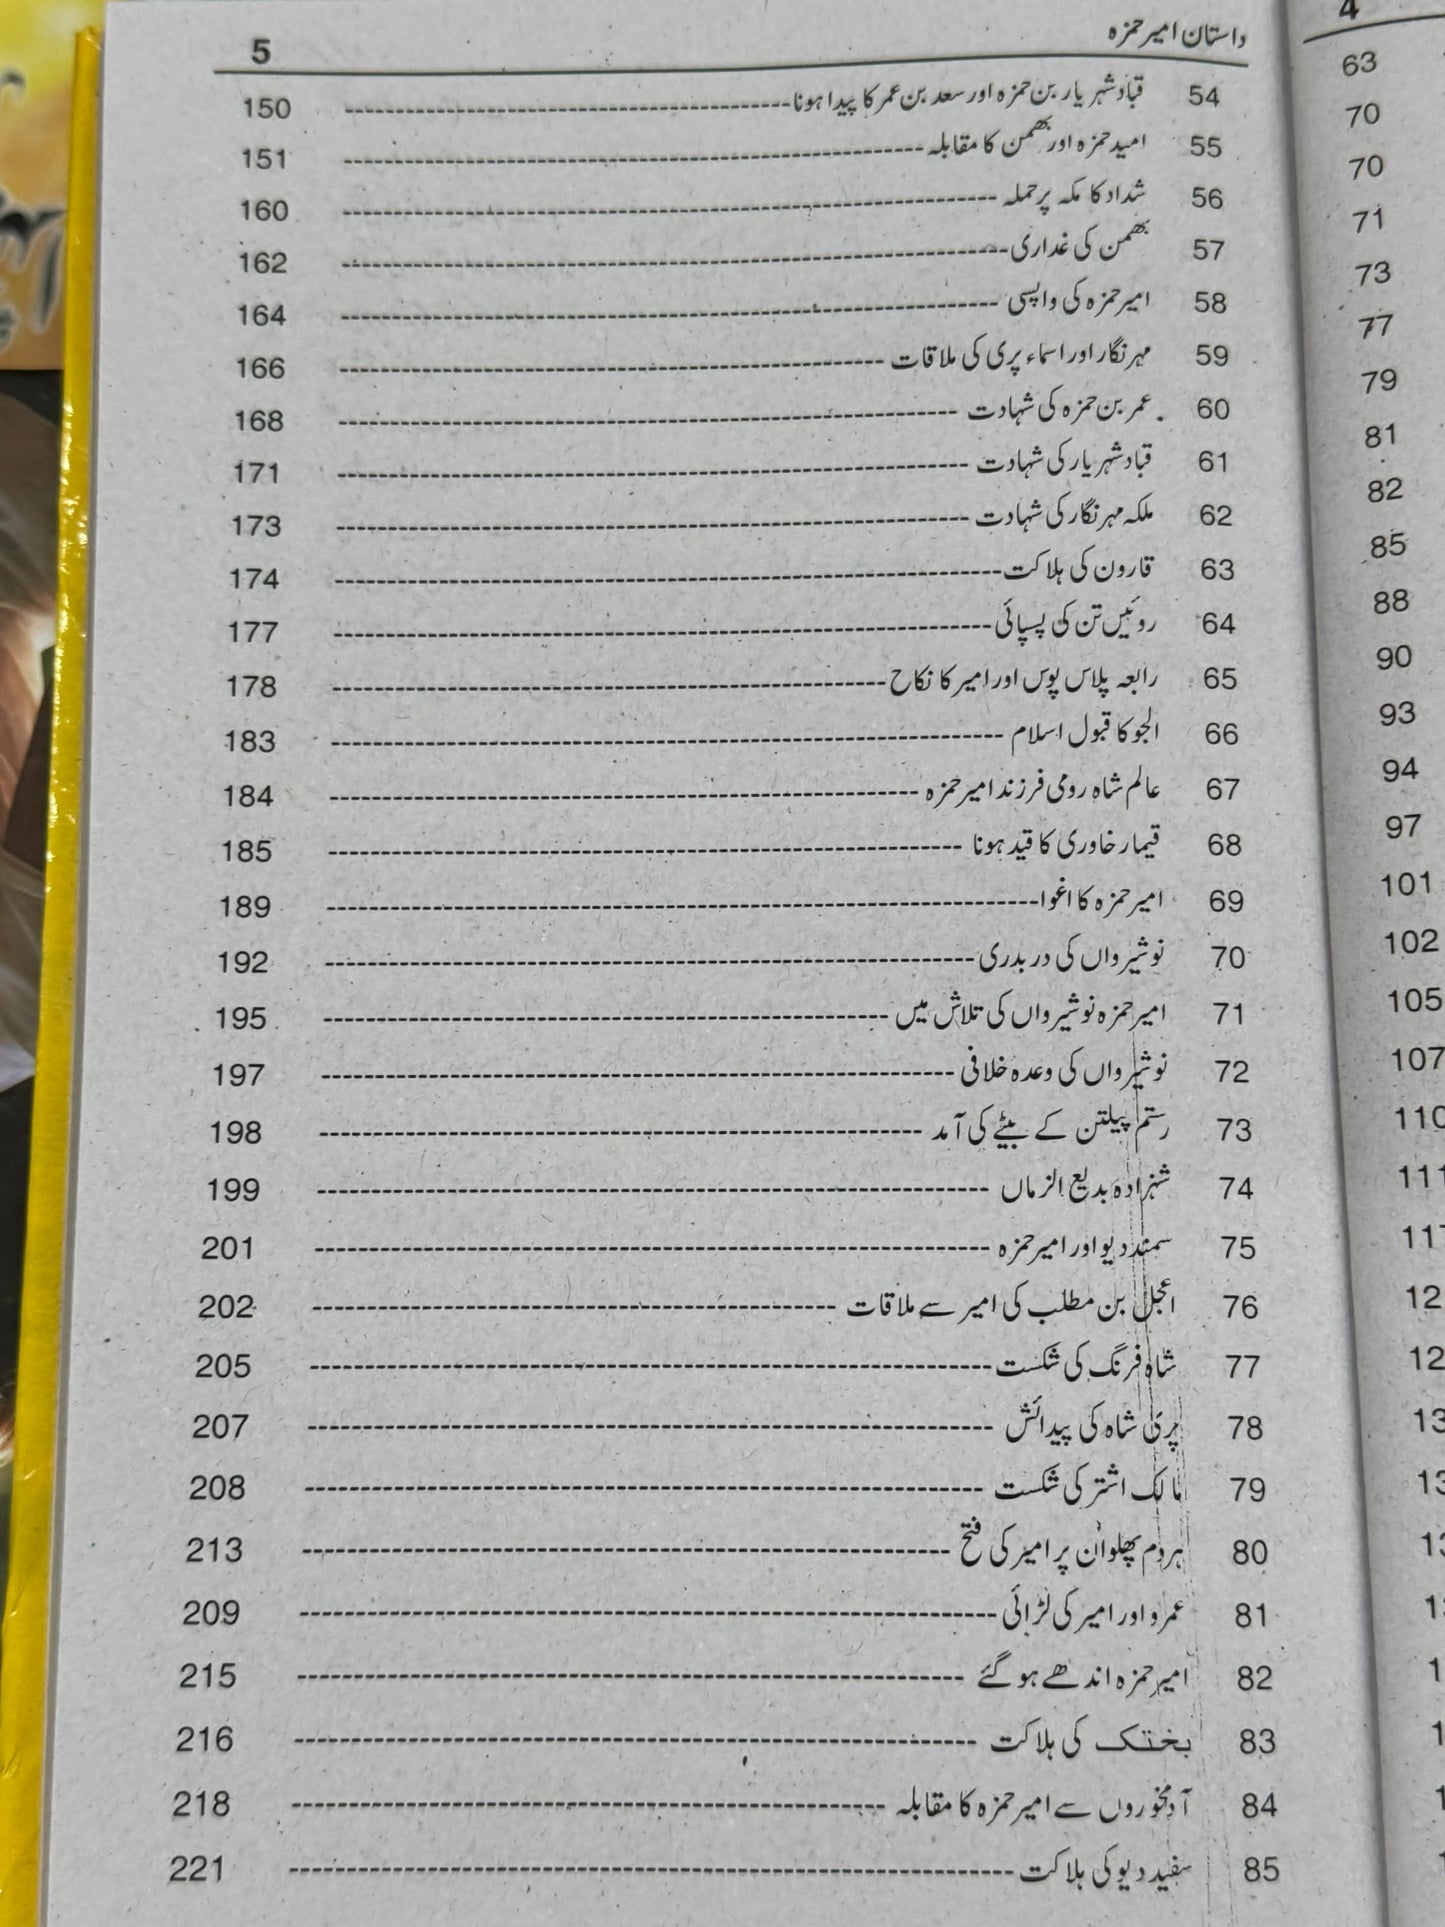 داستان امیر حمزہ 5
54 قباد شہریار بن حمزہ اور سعد بن عمر کا پیدا ہونا 150
55 امید حمزہ اور بھمن کا مقابلہ 151
56 شداد کا مکہ پر حملہ 160
57 بھمن کی غداری 162
58 امیر حمزہ کی واپسی 164
59 مہر نگار اور اسماء پری کی ملاقات 166
60 عمر بن حمزہ کی شہادت 168
61 قباد شہریار کی شہادت 171
62 ملکہ مہر نگار کی شہادت 173
63 قارون کی ہلاکت 174
64 روئیں تن کی پسپائی 177
65 رابعہ پلاس پوس اور امیر کا نکاح 178
66 الجو کا قبول اسلام 183
67 عالم شاہ رومی فرزند امیر حمزہ 184
68 قیمار خاوری کا قید ہونا 185
69 امیر حمزہ کا اغوا 189
70 نوشیرواں کی دربدری 192
71 امیر حمزہ نوشیرواں کی تلاش میں 195
72 نوشیرواں کی وعدہ خلافی 197
73 رستم پیلتن کے بیٹے کی آمد 198
74 شہزادہ بدیع الزماں 199
75 سمند دیو اور امیر حمزہ 201
76 اعجل بن مطلب کی امیر سے ملاقات 202
77 شاہ فرنگ کی شکست 205
78 پری شاہ کی پیدائش 207
79 مالک اشتر کی شکست 208
80 ہردم پھلوان پر امیر کی فتح 213
81 عمرو اور امیر کی لڑائی 209
82 امیر حمزہ اندھے ہو گئے 215
83 بختک کی ہلاکت 216
84 آدمخوروں سے امیر حمزہ کا مقابلہ 218
85 سفید دیو کی ہلاکت 221
4
63
70
70
71
73
77
79
81
82
85
88
90
93
94
97
101
102
105
107